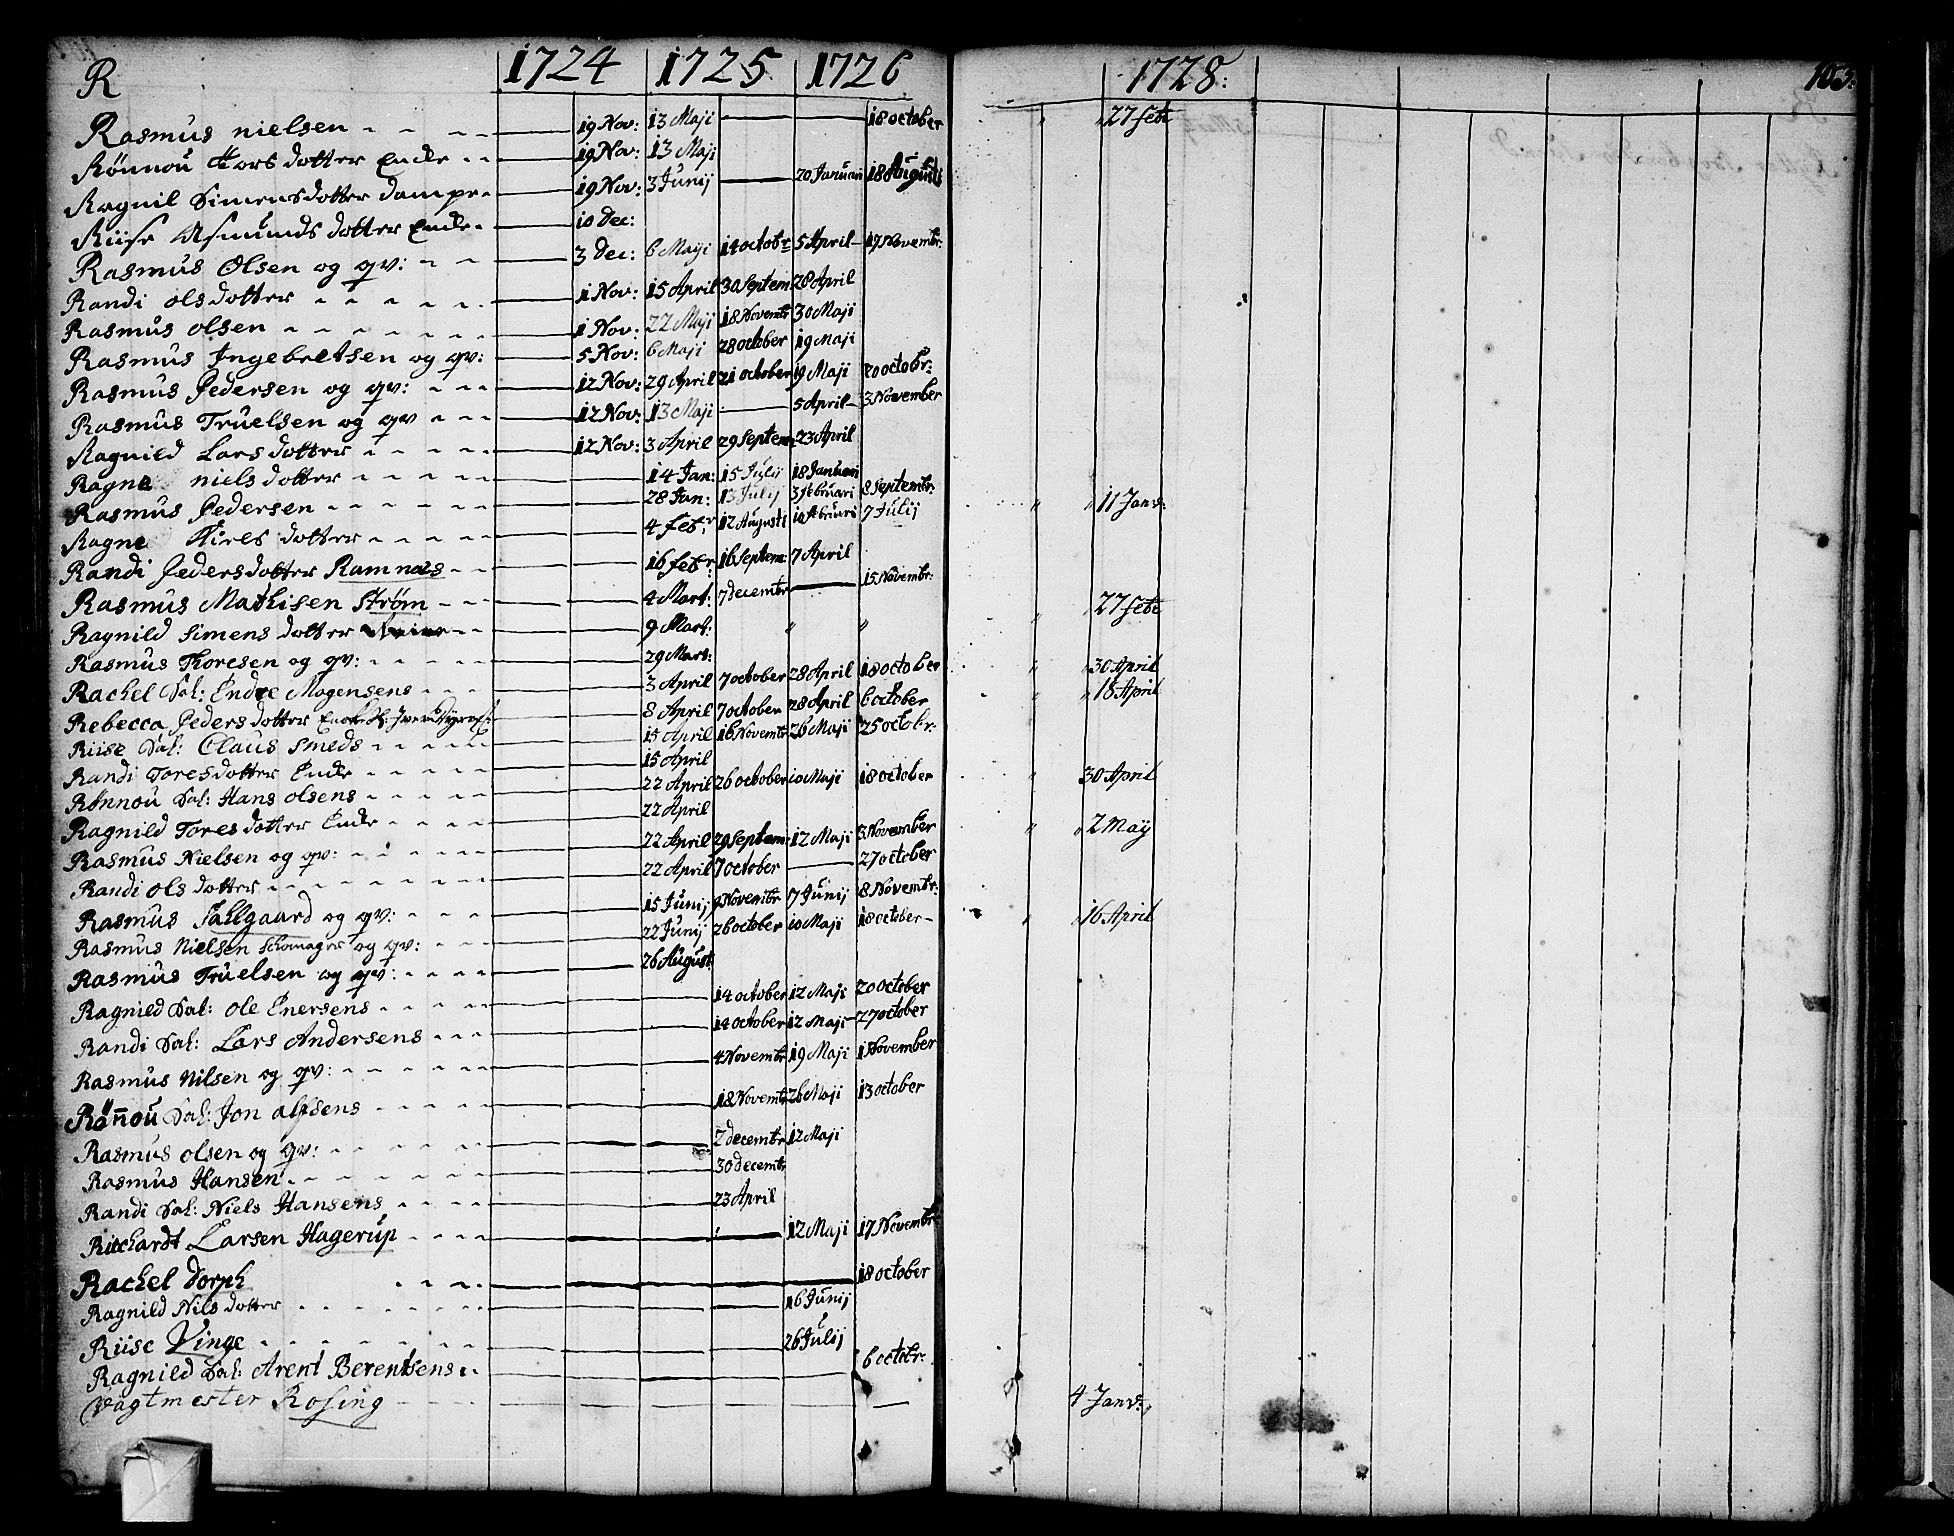 R 1724 1725 1726 1728: 103:
Rasmus nielsen 19 Nov: 13 Maji 18 october 27 febr
Rönnou dotter Encke 19 Nov: 13 Maji
Ragnil Simensdotter 19 Nov: 3 Junij 20 Januari 18 Augusti
Riise Asmunds dotter Encke 10 dec:
Rasmus Olsen og qv: 3 dec: 6 Maji 14 octobr 5 April 17 Novembr:
Randi olsdotter 1 Nov: 15 April 30 Septem 28 April
Rasmus olsen 1 Nov: 22 Maji 18 Novembr 30 Maji
Rasmus Ingebretsen og qv: 5 Nov: 6 Maji 28 october 19 Maji
Rasmus Pedersen og qv: 12 Nov: 29 April 21 october 19 Maji 20 octobr:
Rasmus Truelsen og qv 12 Nov: 13 Maji 5 April 3 November
Ragnild Lars dotter 12 Nov: 3 April 29 Septem 23 April
Ragne niels dotter 14 Jan: 15 Julij 18 Januari
Rasmus Pedersen 28 Jan: 13 Julij 3 februari 8 Septembr: 11 Janv:
Ragne dotter 4 febr: 12 Augusti februari 7 Julij
Randi Pedersdotter Ramnæs 16 febr: 16 Septem: 7 April
Rasmus Mathisen Strøm 4 Mart: 7 decembr 15 Novembr: 27 febr
Ragnild Simens dotter 9 Mart:
Rasmus Thoresen og qv: 29 Mart:
Rachel Sal: Endre Mogensens 3 April 7 october 28 April 18 october 30 April
Rebecca Peders dotter 8 April 7 october 28 April 6 october 18 April
Riise Sal: Claus Smeds 15 April 16 Novembr 26 Maji 25 octobr:
Randi Toresdotter Encke 15 April
Rønnou Sal: Hans olsens 22 April 26 october 10 Maji 18 october 30 April
Ragnild Tores dotter Encke 22 April
Rasmus Nielsen og qv: 22 April 29 Septem: 12 Maji 3 November 2 May
Randi ols dotter 22 April 7 october 27 october
Rasmus Fallgaard og qv: 15 Junij Novembr 7 Junij 8 Novembr:
Rasmus Nielsen Schomager og qv: 22 Junij 26 october 10 Maji 18 october 16 April
Rasmus Truelsen og qv: 26 August
Ragnild Sal: ole Enersens 14 october 12 Maji 20 october
Randi Sal: Lars Andersens 14 october 12 Maji 27 october
Rasmus Nilsen og qv: 4 Novembr 19 Maji November
Rönnou Sal: Jon alfsens 18 Novembr 26 Maji 13 october
Rasmus olsen og qv: 2 decembr 12 Maji
Rasmus Hansen 30 decembr
Randi Sal: Niels Hansens 23 April
Richardt Larsen Hagerup 12 Maji 17 Novembr
Rachel Dorph 18 october
Ragnild Nils dotter 16 Junij
Riise Vinge 26 Julij
Ragnild Sal: Arent Berentsens 6 octobr:
Vagtmester Rosing 4 Janv: